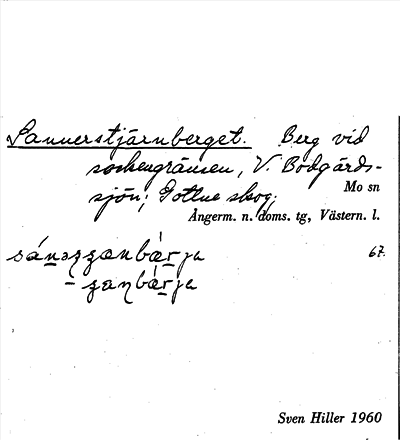 Sannerstjärnberget. Berg vid
sockengränsen, V. Bodgårds-
sjön; Gottne skog.
Mo sn
Ångerm. n. doms. tg, Västern. l.
67.
Sven Hiller 1960